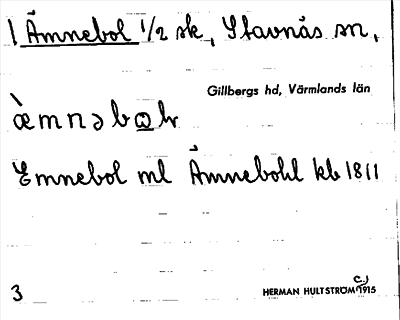 1 Ämnebol 1/2 sk, Stavnäs sn,
Gillbergs hd, Värmlands län
æ̀mnəbω̲lr
Emnebol ml Ämnebohl kb 1811
3
HERMAN HULTSTRÖM 1915